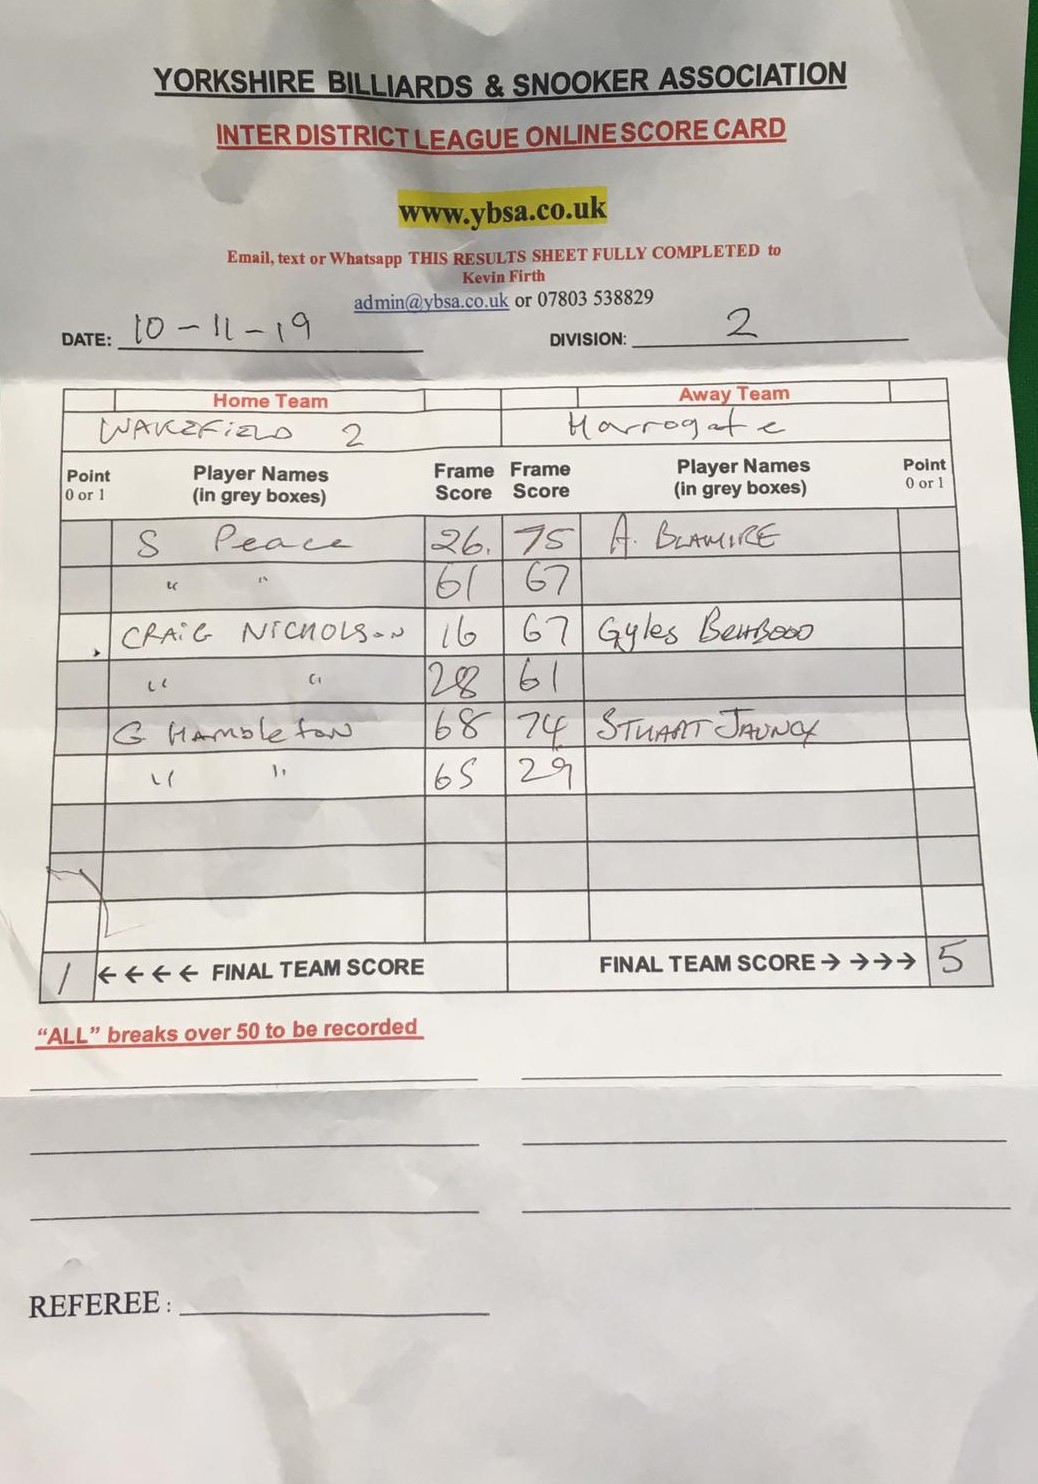 YORKSHIRE BILLIARDS & SNOOKER ASSOCIATION
INTER DISTRICT LEAGUE ONLINE SCORE CARD
www.ybsa.co.uk
Email, text or Whatsapp THIS RESULTS SHEET FULLY COMPLETED to
Kevin Firth
admin@ybsa.co.uk or 07803 538829
DATE: 10-11-19 DIVISION: 2
Home Team Away Team
WAKEFIELD 2 Harrogate
Point 0 or 1 Player Names (in grey boxes) Frame Score Frame Score Player Names (in grey boxes) Point 0 or 1
S Peace 26. 75 A. BLAMIRE
" " 61 67
CRAIG NICHOLSON 16 67 Gyles
" " 28 61
G HAMbLeTON 68 74 STUART
" " 65 29
1 ←←←← FINAL TEAM SCORE FINAL TEAM SCORE →→→→ 5
"ALL" breaks over 50 to be recorded
REFEREE :